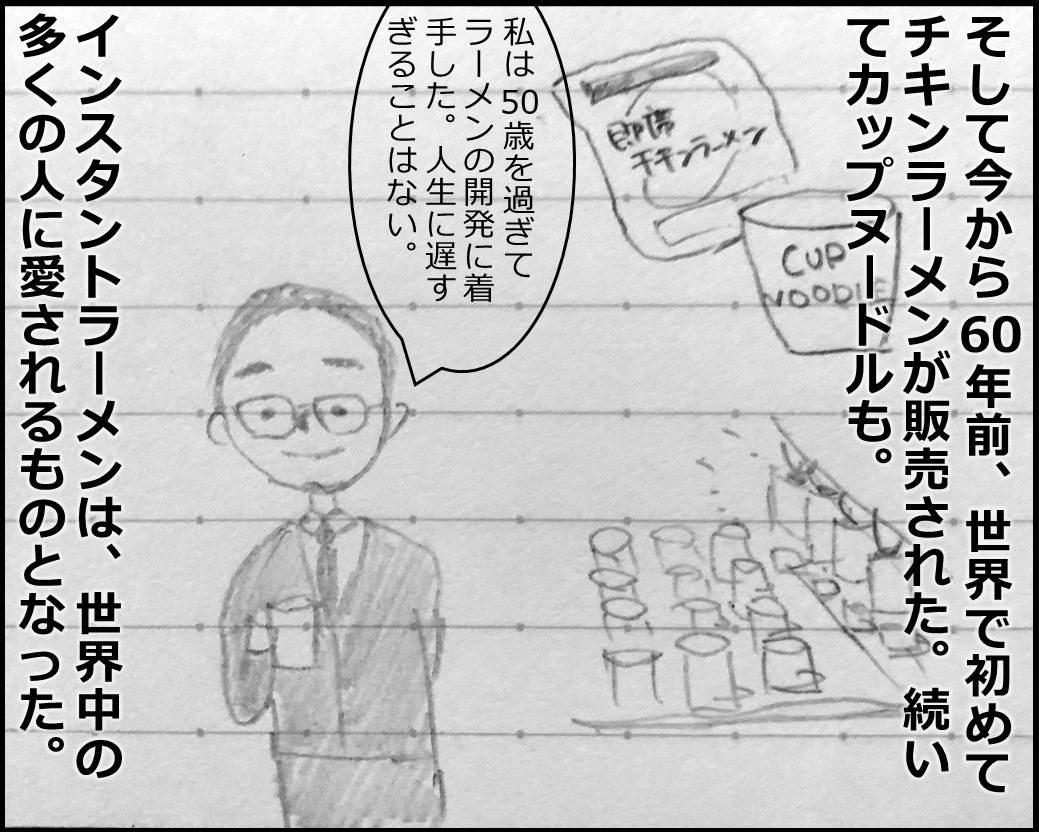 そして今から60年前、世界で初めて
チキンラーメンが販売された。続い
てカップヌードルも。
即席
チキンラーメン
CUP
NOODLE
私は50歳を過ぎて
ラーメンの開発に着
手した。人生に遅す
ぎることはない。
インスタントラーメンは、世界中の
多くの人に愛されるものとなった。